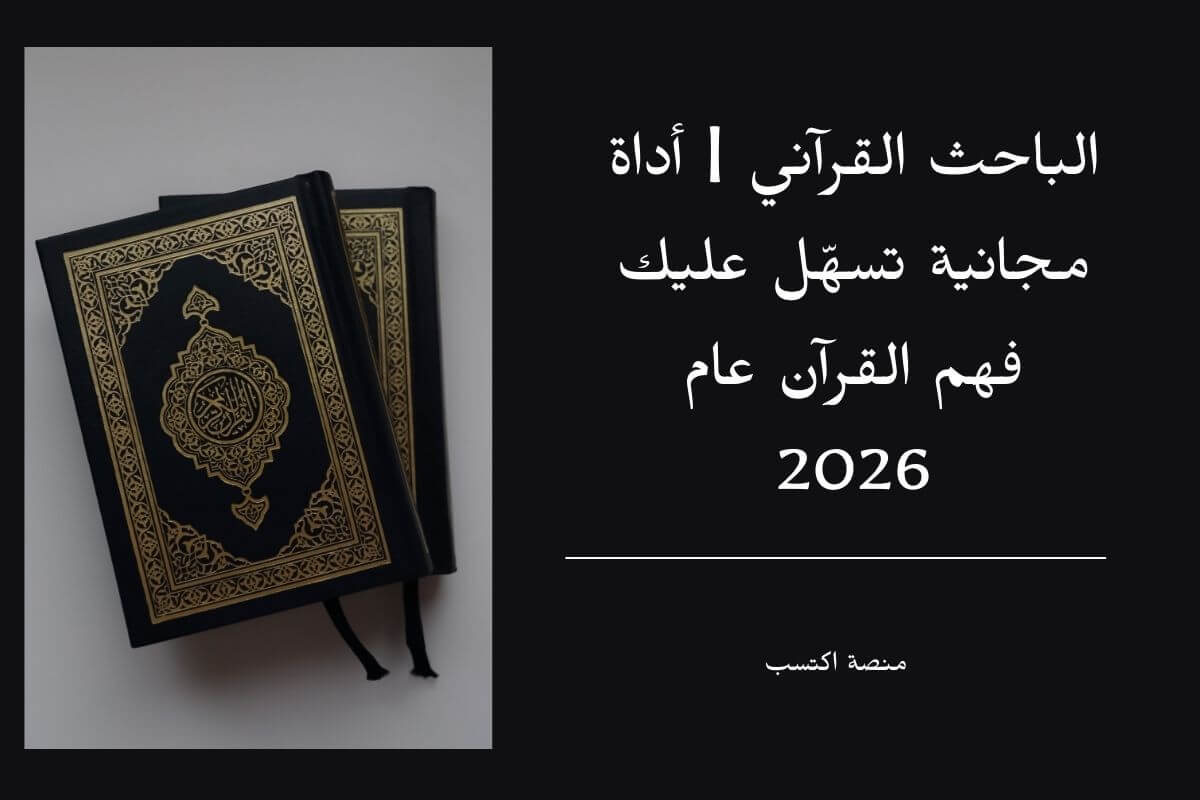 الباحث القرآني | أداة
مجانية تسهّل عليك
فهم القرآن عام
2026
منصة اكتسب
القرآن الكريم